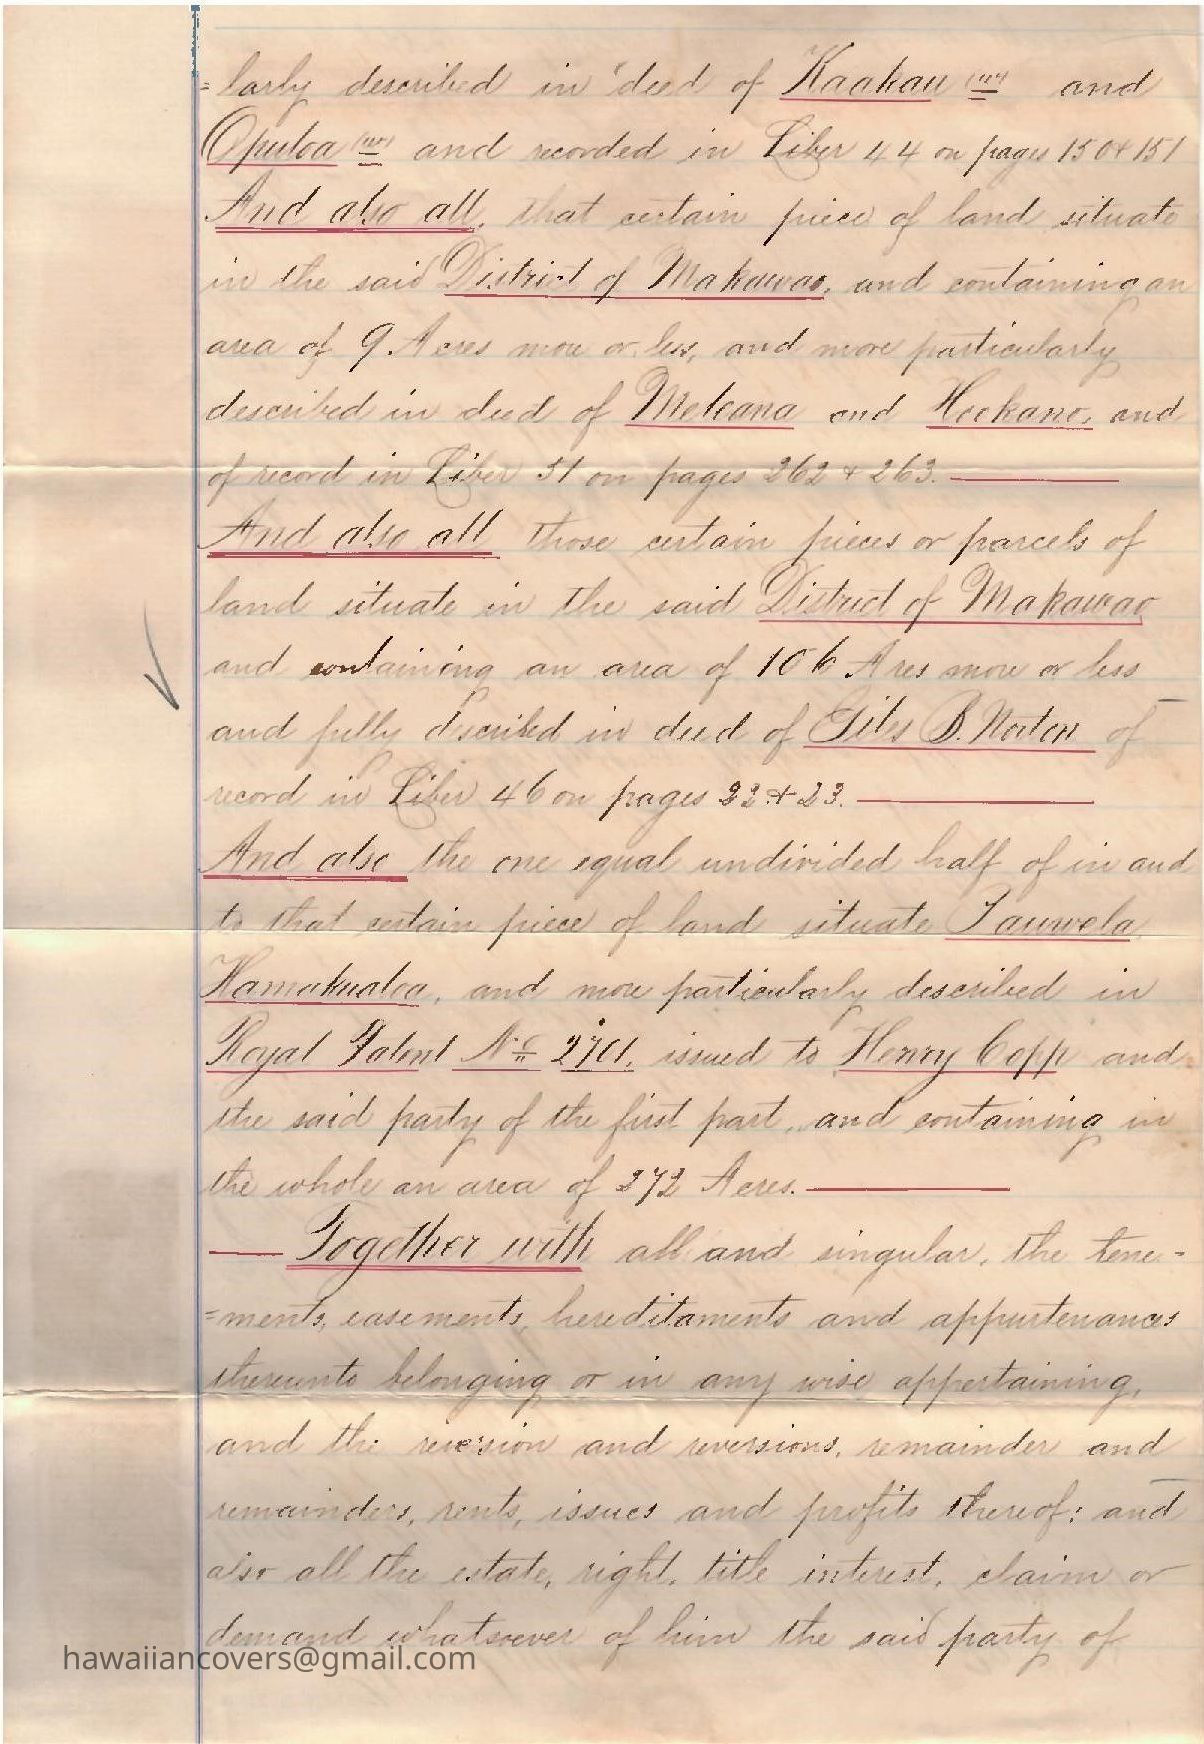 =larly described in deed of Kaakau (w) and
Opuloa (w) and recorded in Liber 44 on pages 150 & 151
And also all, that certain piece of land situate
in the said District of Makawao, and containing an
area of 9 Acres more or less, and more particularly
described in deed of Meleana and Hookano, and
of record in Liber 51 on pages 262 & 263.
And also all those certain pieces or parcels of
land situate in the said District of Makawao
and containing an area of 106 Acres more or less
and fully described in deed of B. Norton of
record in Liber 46 on pages 22 & 23.
And also the one equal undivided half of in and
to that certain piece of land situate Pauwela
Hamakualoa, and more particularly described in
Royal Patent No 2701, issued to Henry Copp and
the said party of the first part, and containing in
the whole an area of 272 Acres.
Together with all and singular, the tene-
=ments, easements, hereditaments and appurtenances
thereunto belonging or in any wise appertaining,
and the reversion and reversions, remainder and
remainders, rents, issues and profits thereof: and
also all the estate, right, title interest, claim or
demand whatsoever of him the said party of
hawaiiancovers@gmail.com